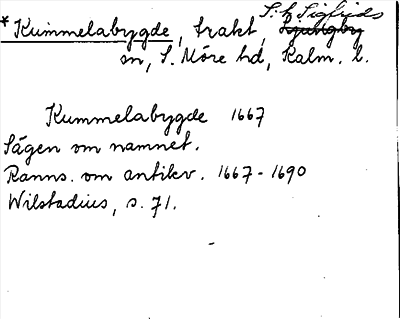 S:t Sigfrids
*Kummelabygde, trakt, Ljungby
sn, S. Möre hd, Kalm. l.
Kummelabygde 1667
Sägen om namnet.
Ranns. om antikv. 1667-1690
Wilstadius, s. 71.